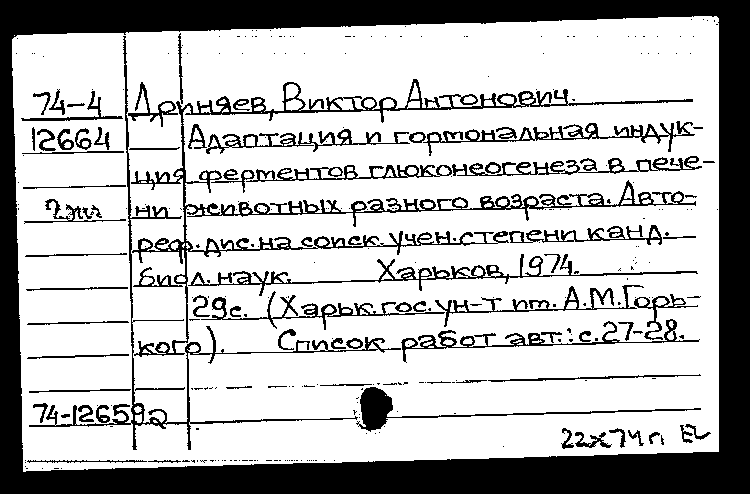 74-4 Дриняев, Виктор Антонович.
12664 Адаптация и гормональная индук-
ция ферментов глюконеогенеза в пече-
2 экз ни животных разного возраста. Авто-
реф. дис. на соиск. учен. степени канд.
биол. наук. Харьков, 1974.
29с. (Харьк. гос. ун-т им. А.М.Горь-
кого). Список работ авт.: с.27-28.
74-12659а
22х74г